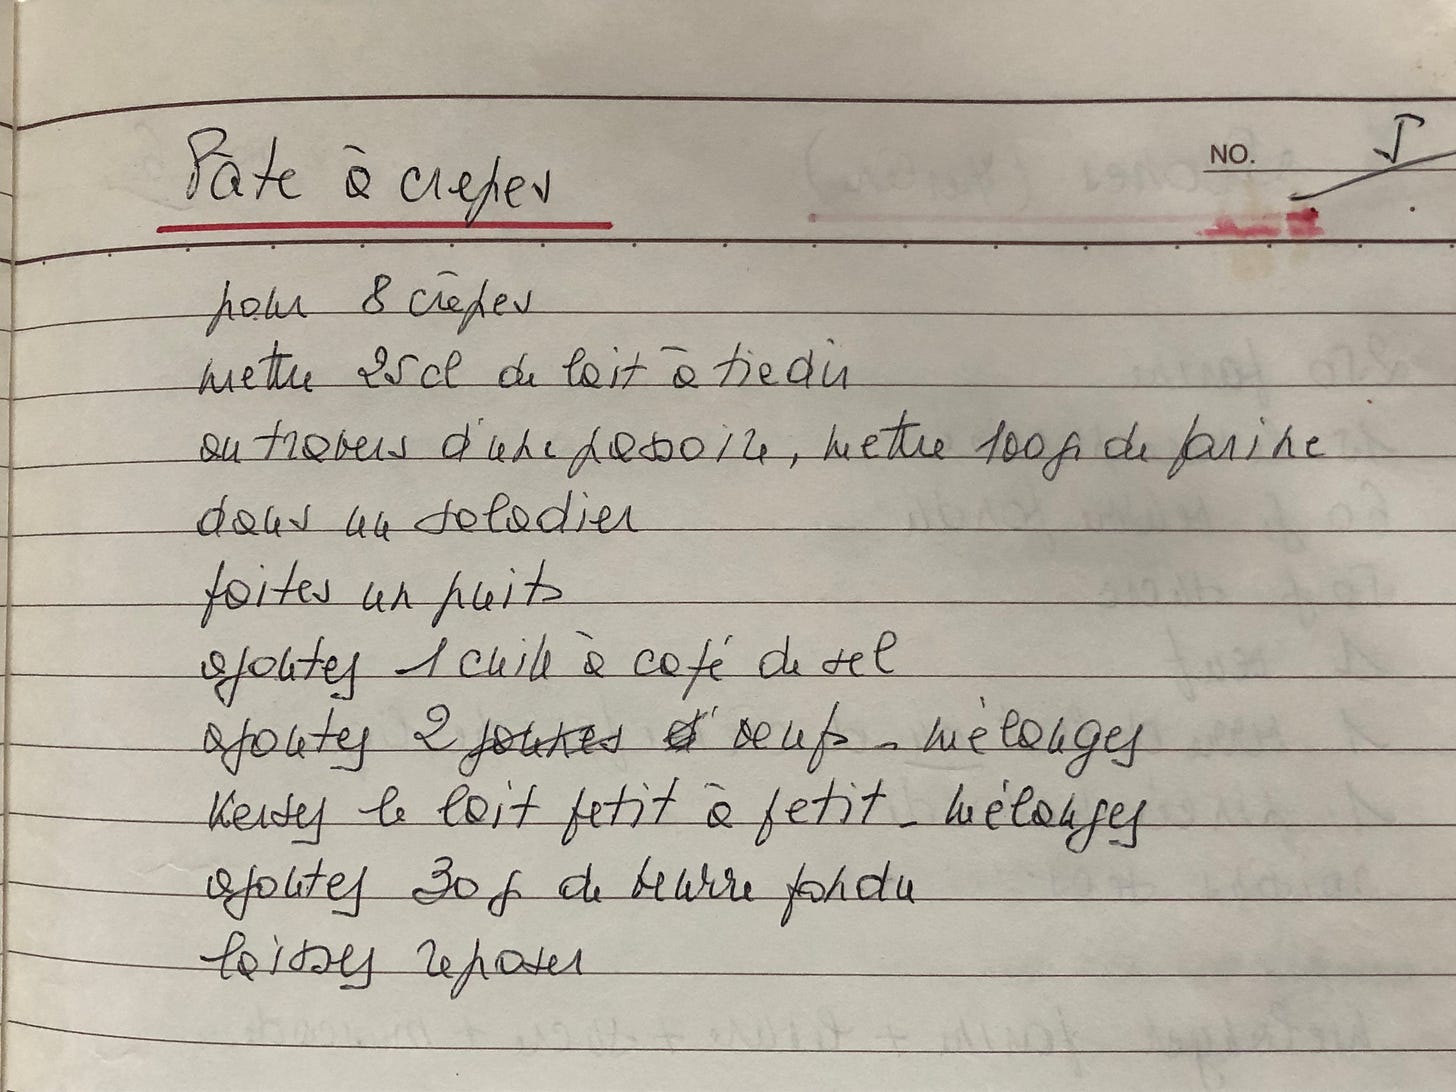 Pâte à crêpes
NO. 5
pour 8 crêpes
mettre 25 cl de lait à tiedir
au travers d'une passoire, mettre 100 g de farine
dans un saladier
faites un puits
ajoutez 1 cuill à café de sel
ajoutez 2 jaunes d' oeufs - mélangez
Versez le lait petit à petit - mélangez
ajoutez 30 g de beurre fondu
laissez reposer